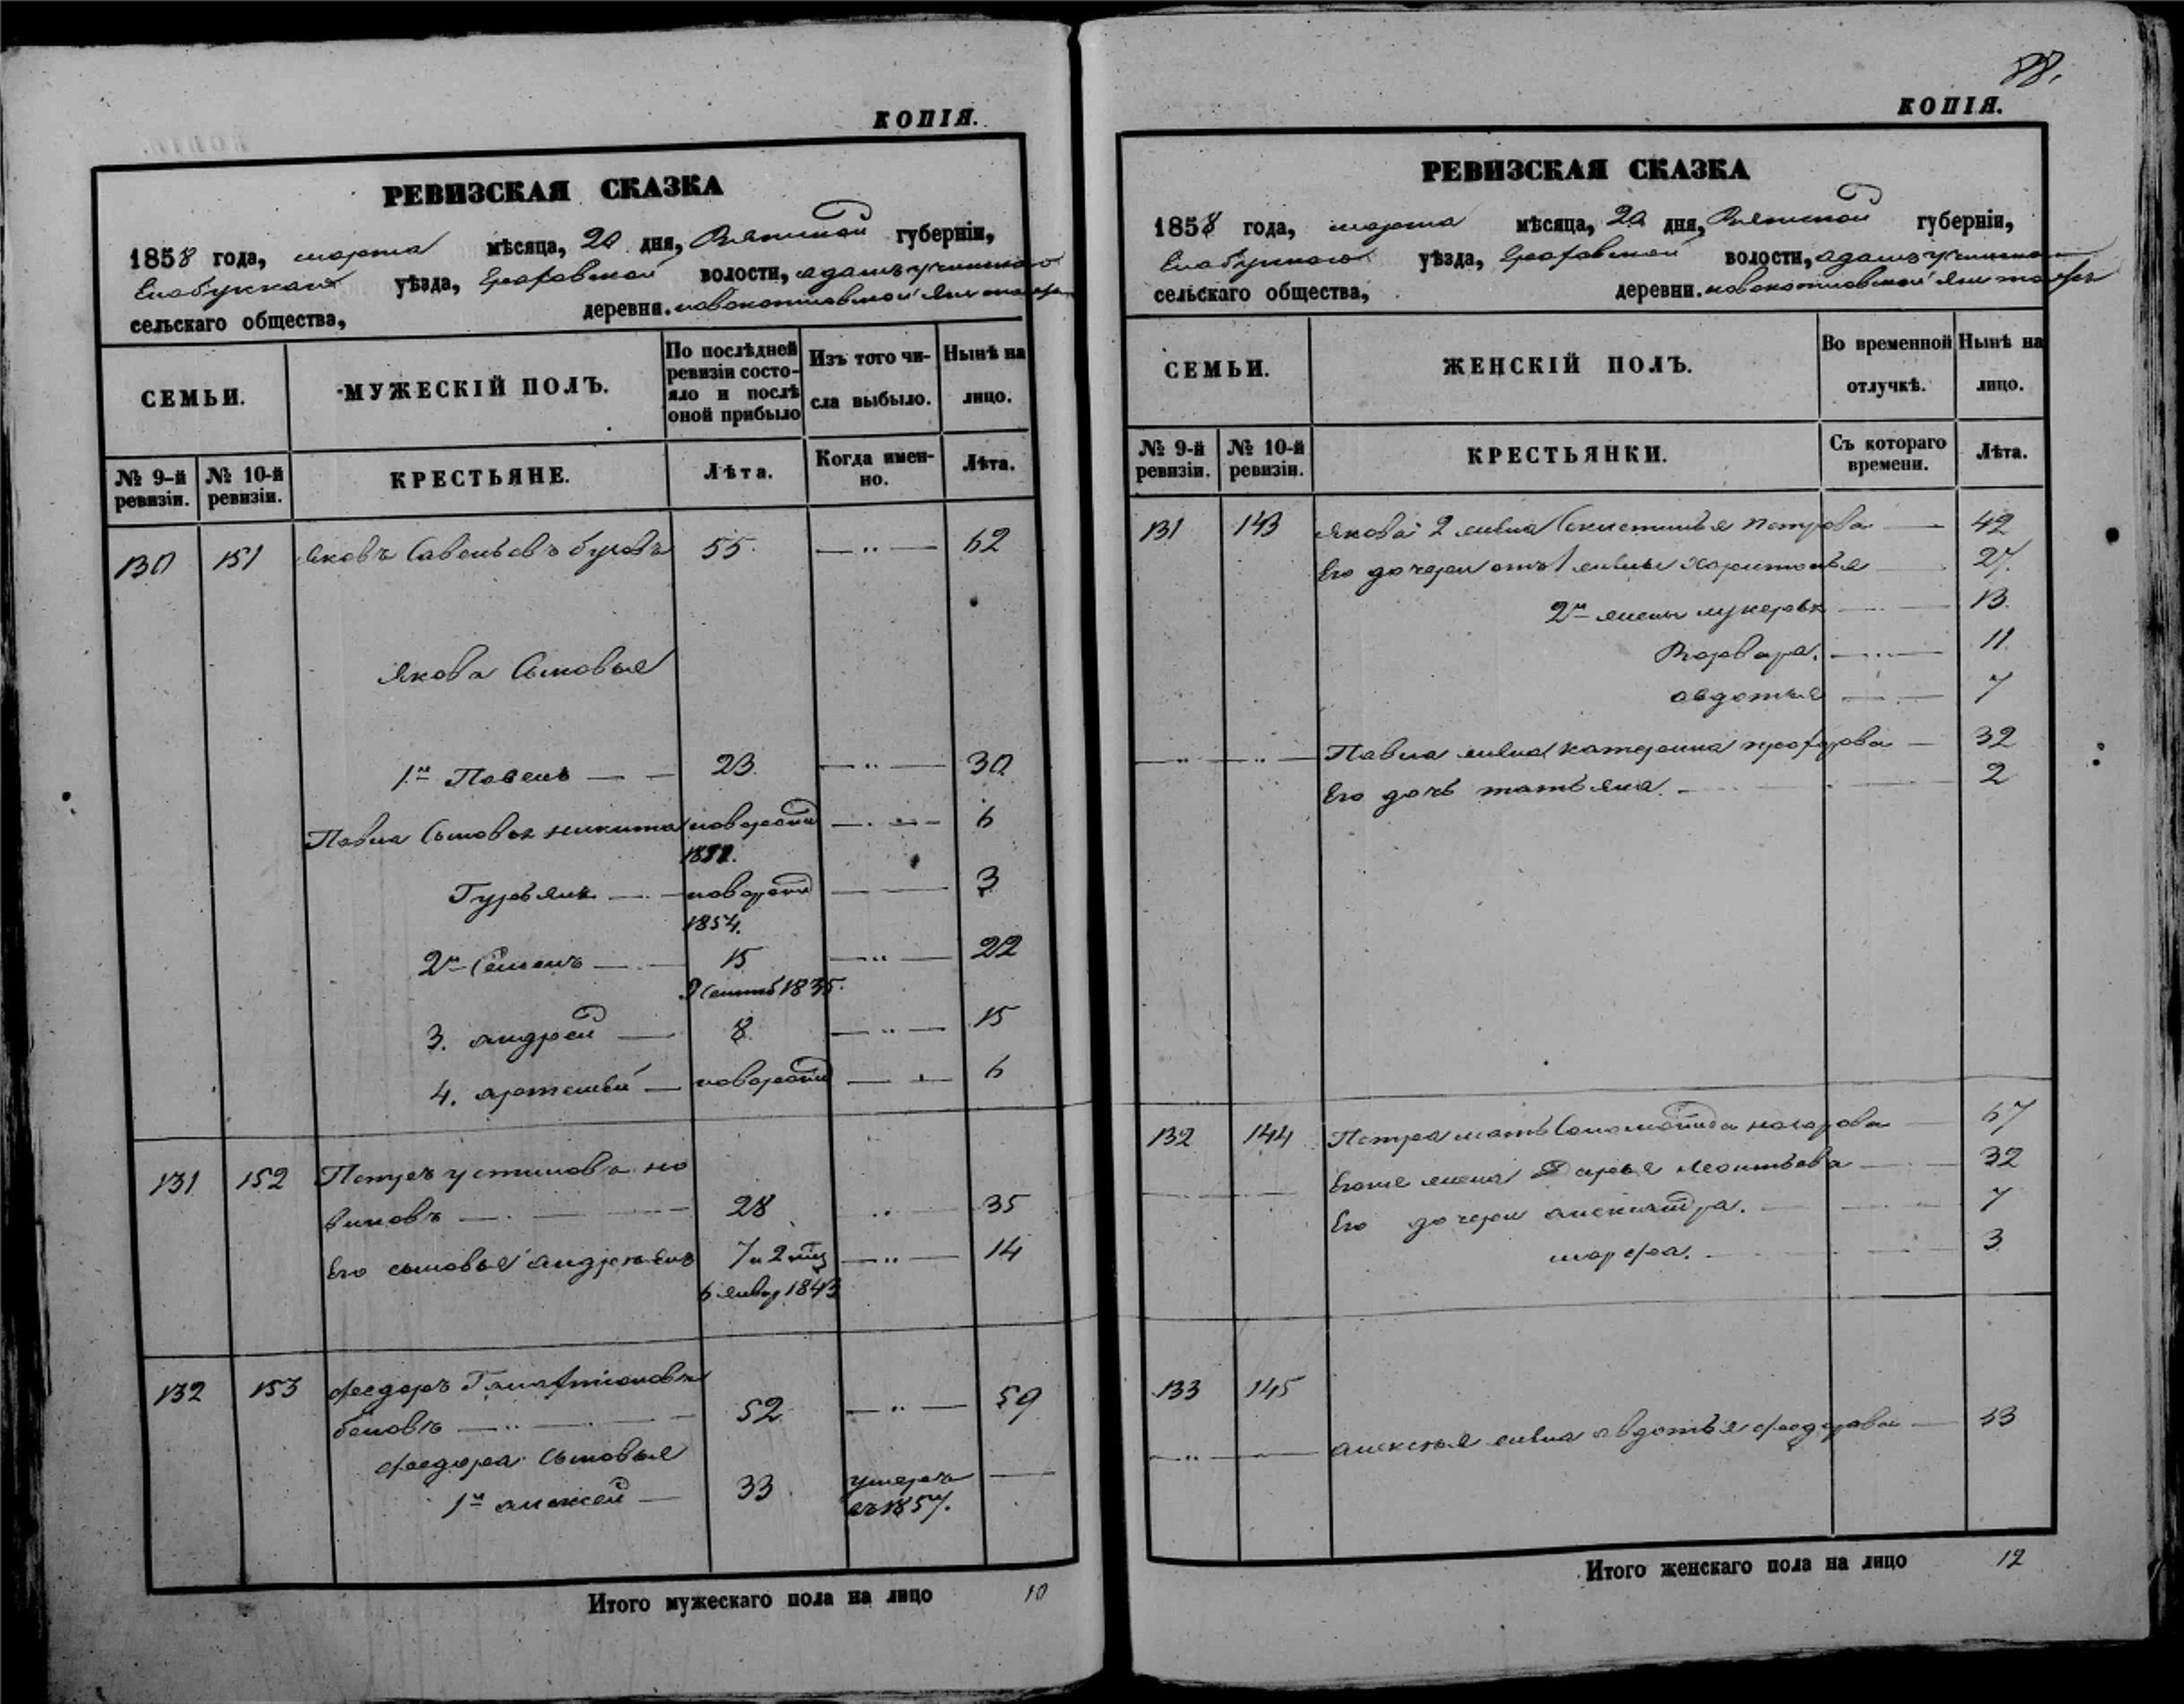 КОПІЯ.
РЕВИЗСКАЯ СКАЗКА
1858 года, марта мѣсяца, 20 дня, Вятской губерніи,
Елабужскаго уѣзда, волости,
сельскаго общества, деревни.
СЕМЬИ.
МУЖЕСКІЙ ПОЛЪ.
По послѣдней ревизіи состо-
яло и послѣ оной прибыло
Изъ того чи-
сла выбыло.
Нынѣ на
лицо.
№ 9-й ревизіи.
№ 10-й ревизіи.
КРЕСТЬЯНЕ.
Лѣта.
Когда имен-
но.
Лѣта.
130 151 Яковъ Савельевъ 55 — " — 62
Якова Сыновья
1й Павелъ — — 23 — " — 30
Павла Сыновья Никита новорожд — " — 6
1851.
Гурьянъ — — новорожд — — 3
1854.
2й Семенъ — — 15 — " — 22
9 Сентяб 1835.
3. Андрей — 8 — " — 15
4. Артемей — новорожд — " — 6
131 152 Петръ Устиновъ но
виковъ — — 28 " — 35
Его сыновья Андреянъ 7 и 2 мц — " — 14
6 январ 1843
132 153 Федоръ
бековъ — " — 52 — " — 59
Федора Сыновья
1й Алексей — 33 умеръ —
въ 1857.
Итого мужескаго пола на лицо 10
88.
КОПІЯ.
РЕВИЗСКАЯ СКАЗКА
1858 года, марта мѣсяца, 20 дня, Вятской губерніи,
Елабужскаго уѣзда, волости,
сельскаго общества, деревни.
СЕМЬИ.
ЖЕНСКІЙ ПОЛЪ.
Во временной
отлучкѣ.
Нынѣ на
лицо.
№ 9-й ревизіи.
№ 10-й ревизіи.
КРЕСТЬЯНКИ.
Съ котораго
времени.
Лѣта.
131 143 Якова 2 жена Петрова — 42
Его дочери отъ 1 жены Харитонья — 27.
2й жены Лукерья — — 13.
Варвара. — — 11.
Авдотья — — 7
— " — " — Павла жена Катерина — 32
Его дочь Татьяна. — — 2
132 144 Петра мать Соломонида Назарова — 67
Егоже жена Дарья Леонтьева — 32
Его дочери Александра. — — 7
Марфа. — — 3
133 145
— " — Алексея жена Авдотья Федорова — 33
Итого женскаго пола на лицо 12